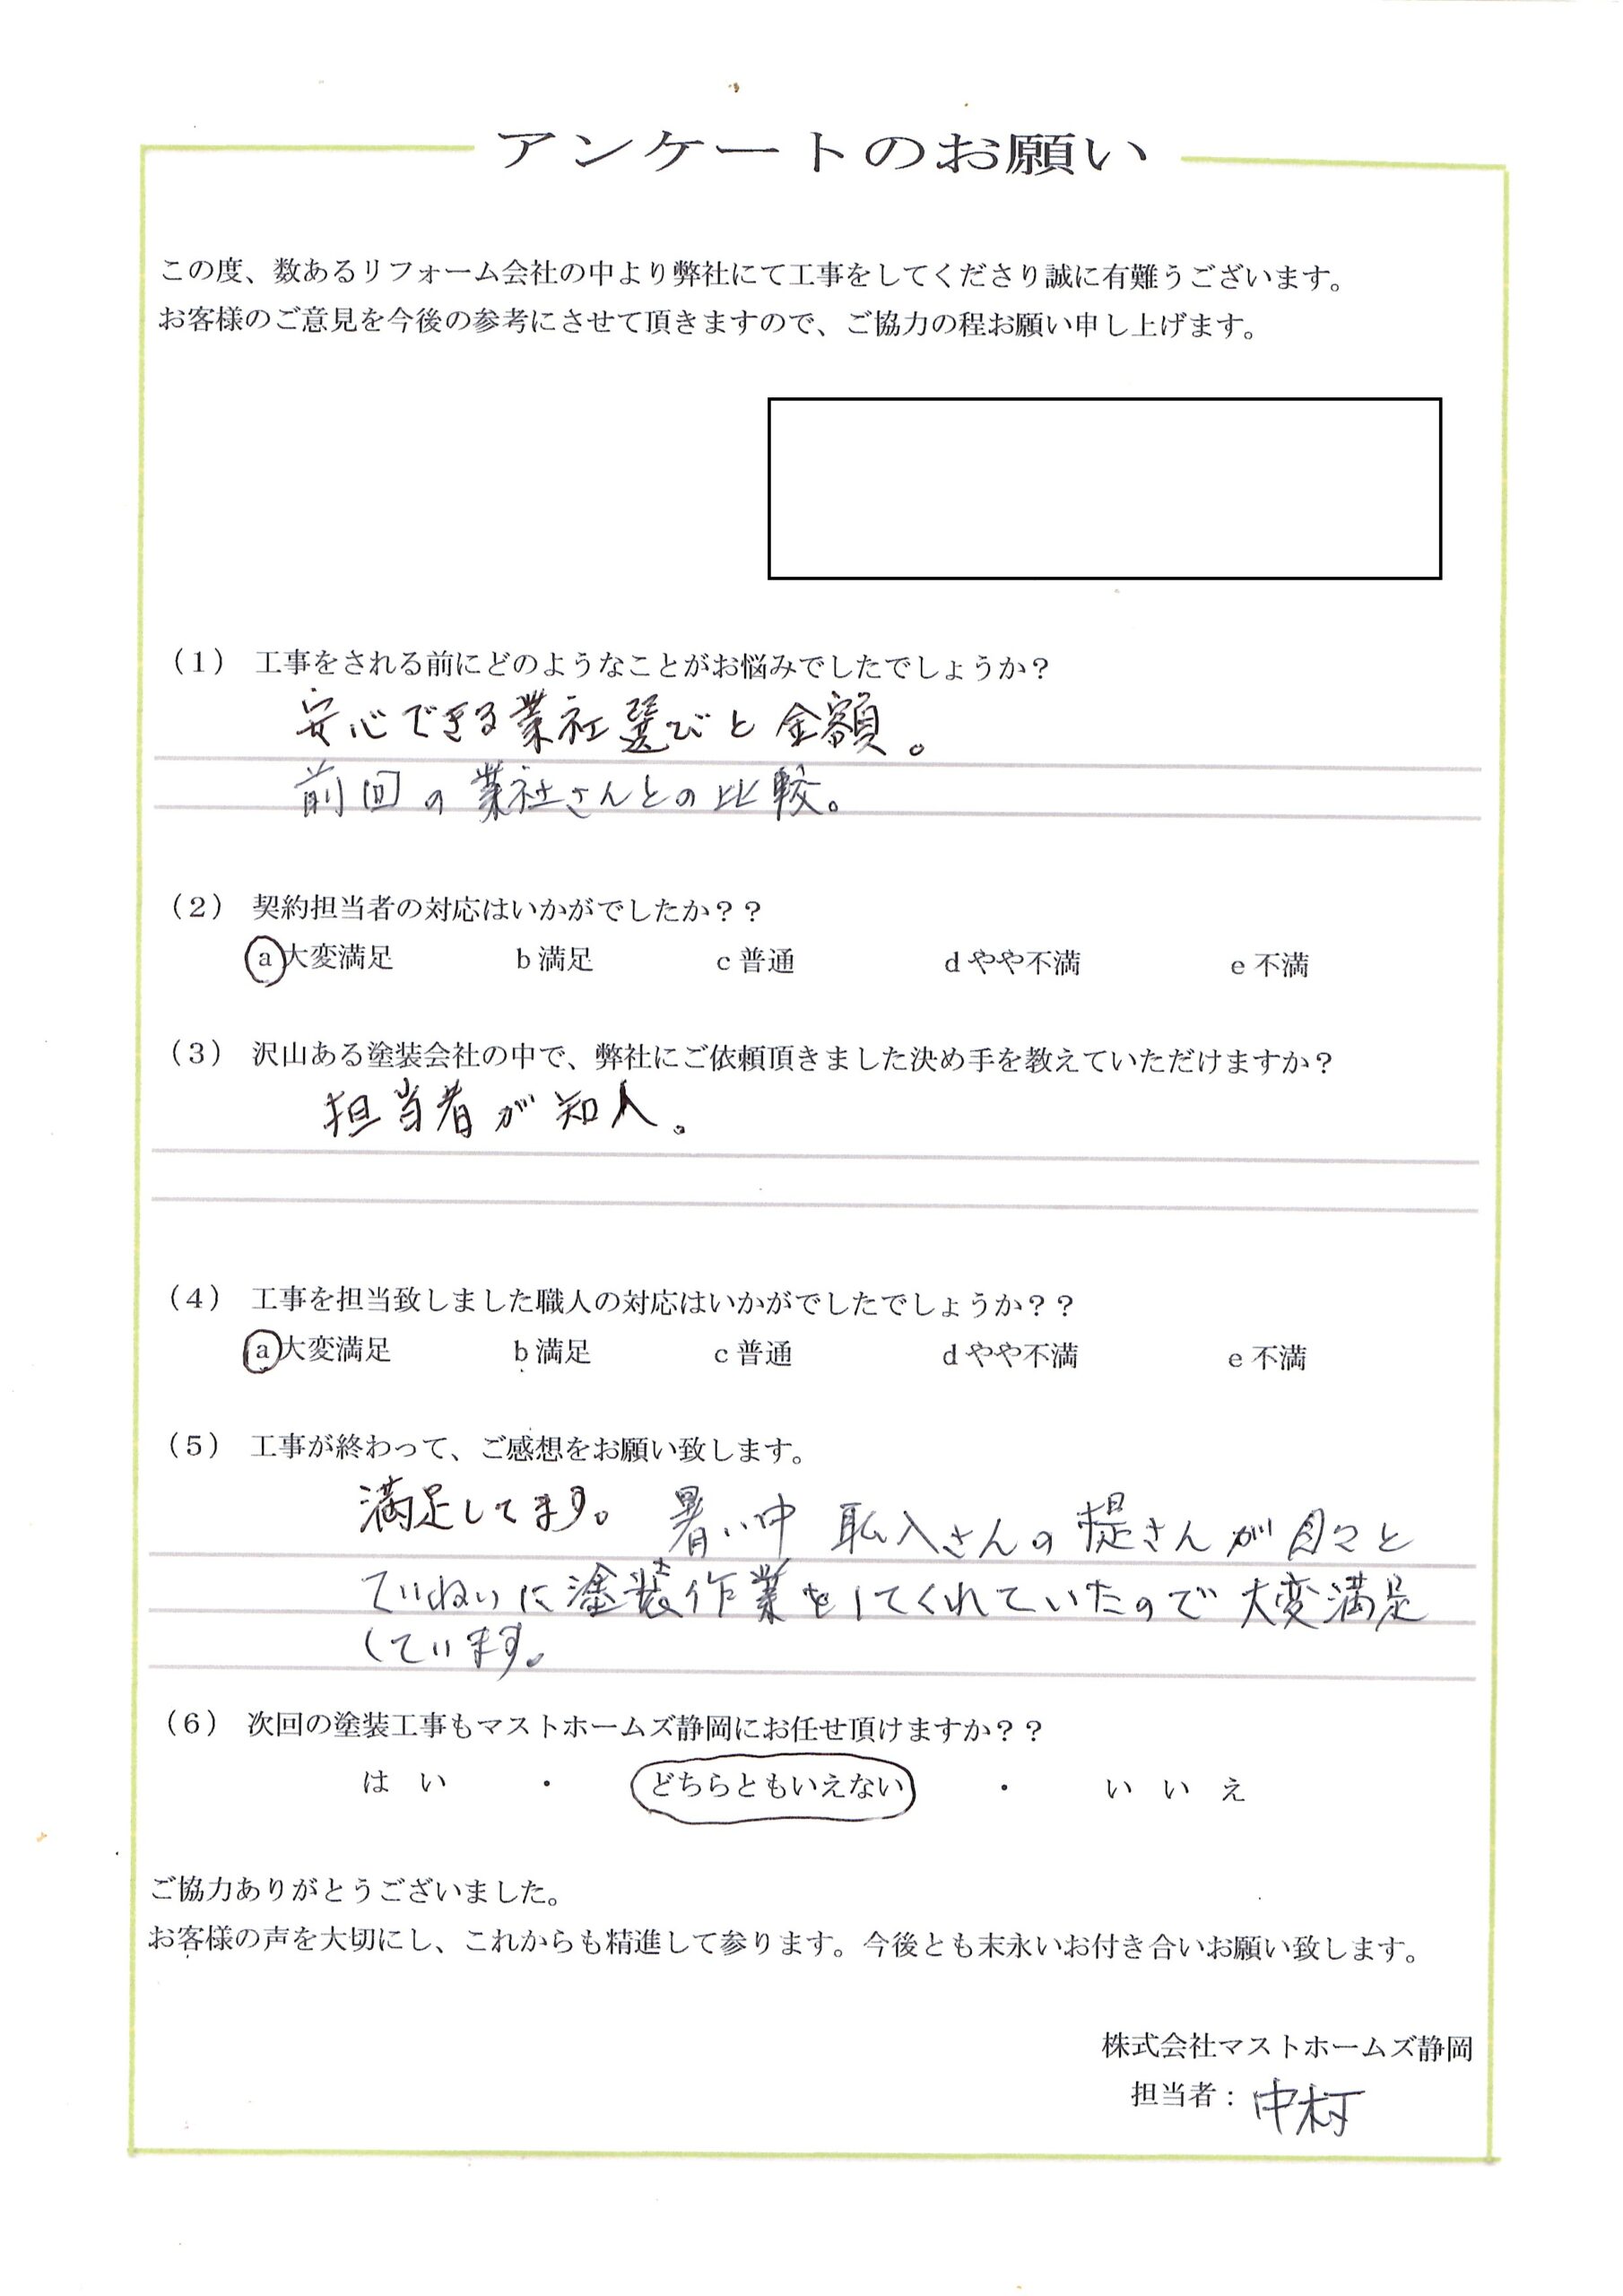 アンケートのお願い
この度、数あるリフォーム会社の中より弊社にて工事をしてくださり誠に有難うございます。
お客様のご意見を今後の参考にさせて頂きますので、ご協力の程お願い申し上げます。
（1） 工事をされる前にどのようなことがお悩みでしたでしょうか？
安心できる業社選びと金額。
前回の業社さんとの比較。
（2） 契約担当者の対応はいかがでしたか？？
a 大変満足 b 満足 c 普通 d やや不満 e 不満
（3） 沢山ある塗装会社の中で、弊社にご依頼頂きました決め手を教えていただけますか？
担当者が知人。
（4） 工事を担当致しました職人の対応はいかがでしたでしょうか？？
a 大変満足 b 満足 c 普通 d やや不満 e 不満
（5） 工事が終わって、ご感想をお願い致します。
満足してます。暑い中 さんの 堤さんが 々と
ていねいに塗装作業をしてくれていたので大変満足
しています。
（6） 次回の塗装工事もマストホームズ静岡にお任せ頂けますか？？
は い ・ どちらともいえない ・ い い え
ご協力ありがとうございました。
お客様の声を大切にし、これからも精進して参ります。今後とも末永いお付き合いお願い致します。
株式会社マストホームズ静岡
担当者：中村